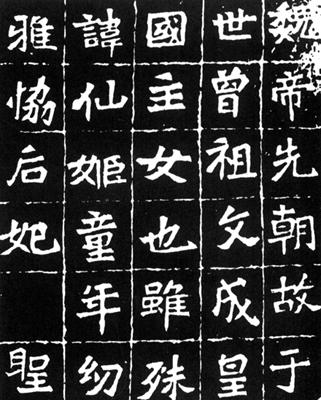 魏帝先朝故于
世曾祖文成皇
國主女也雖殊
諱仙姬童年幼
雅恊后妃 聖